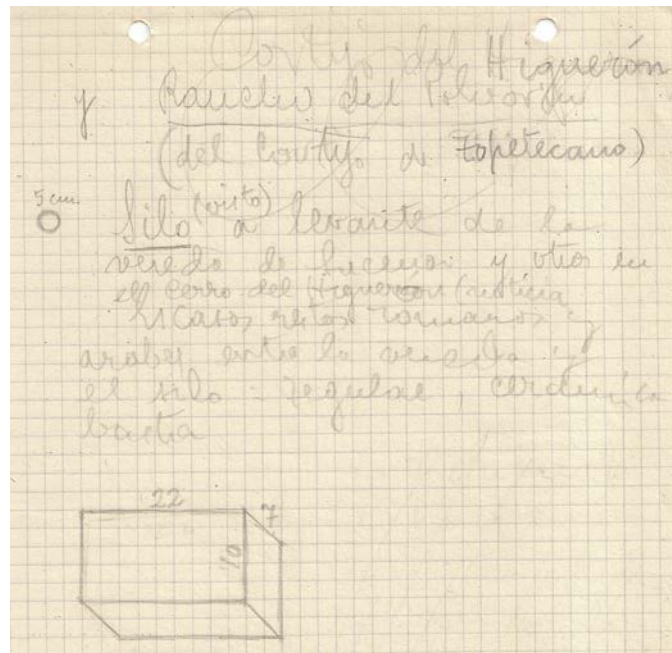 Cortijo del Higuerón
y Rancho del Polvorín
(del Cortijo de Topetecano)
5 cm.
Silo (visto) a levante de la
vereda de Lucena: y otros en
el Cerro del Higuerón (noticia
Escasos restos romanos y
árabes entre la vereda y
el silo = Tegulae, cerámica
basta
22
7
10